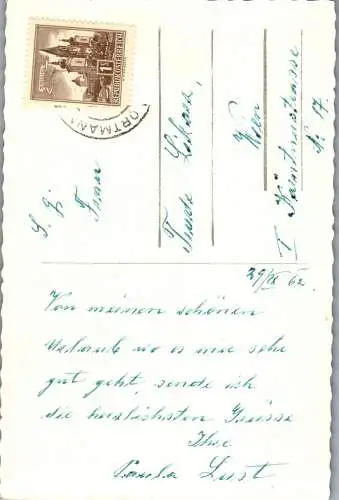 REPUBLIK ÖSTERREICH
ORTMANN
S. g.
Frau
Trude
Wien
I Kärntnerstrasse
N. 17.
29/IX 62.
Von meinen schönen
Urlaub wo es mir sehr
gut geht, sende ich
die herzlichsten Grüsse
Ihre
Paula Lust